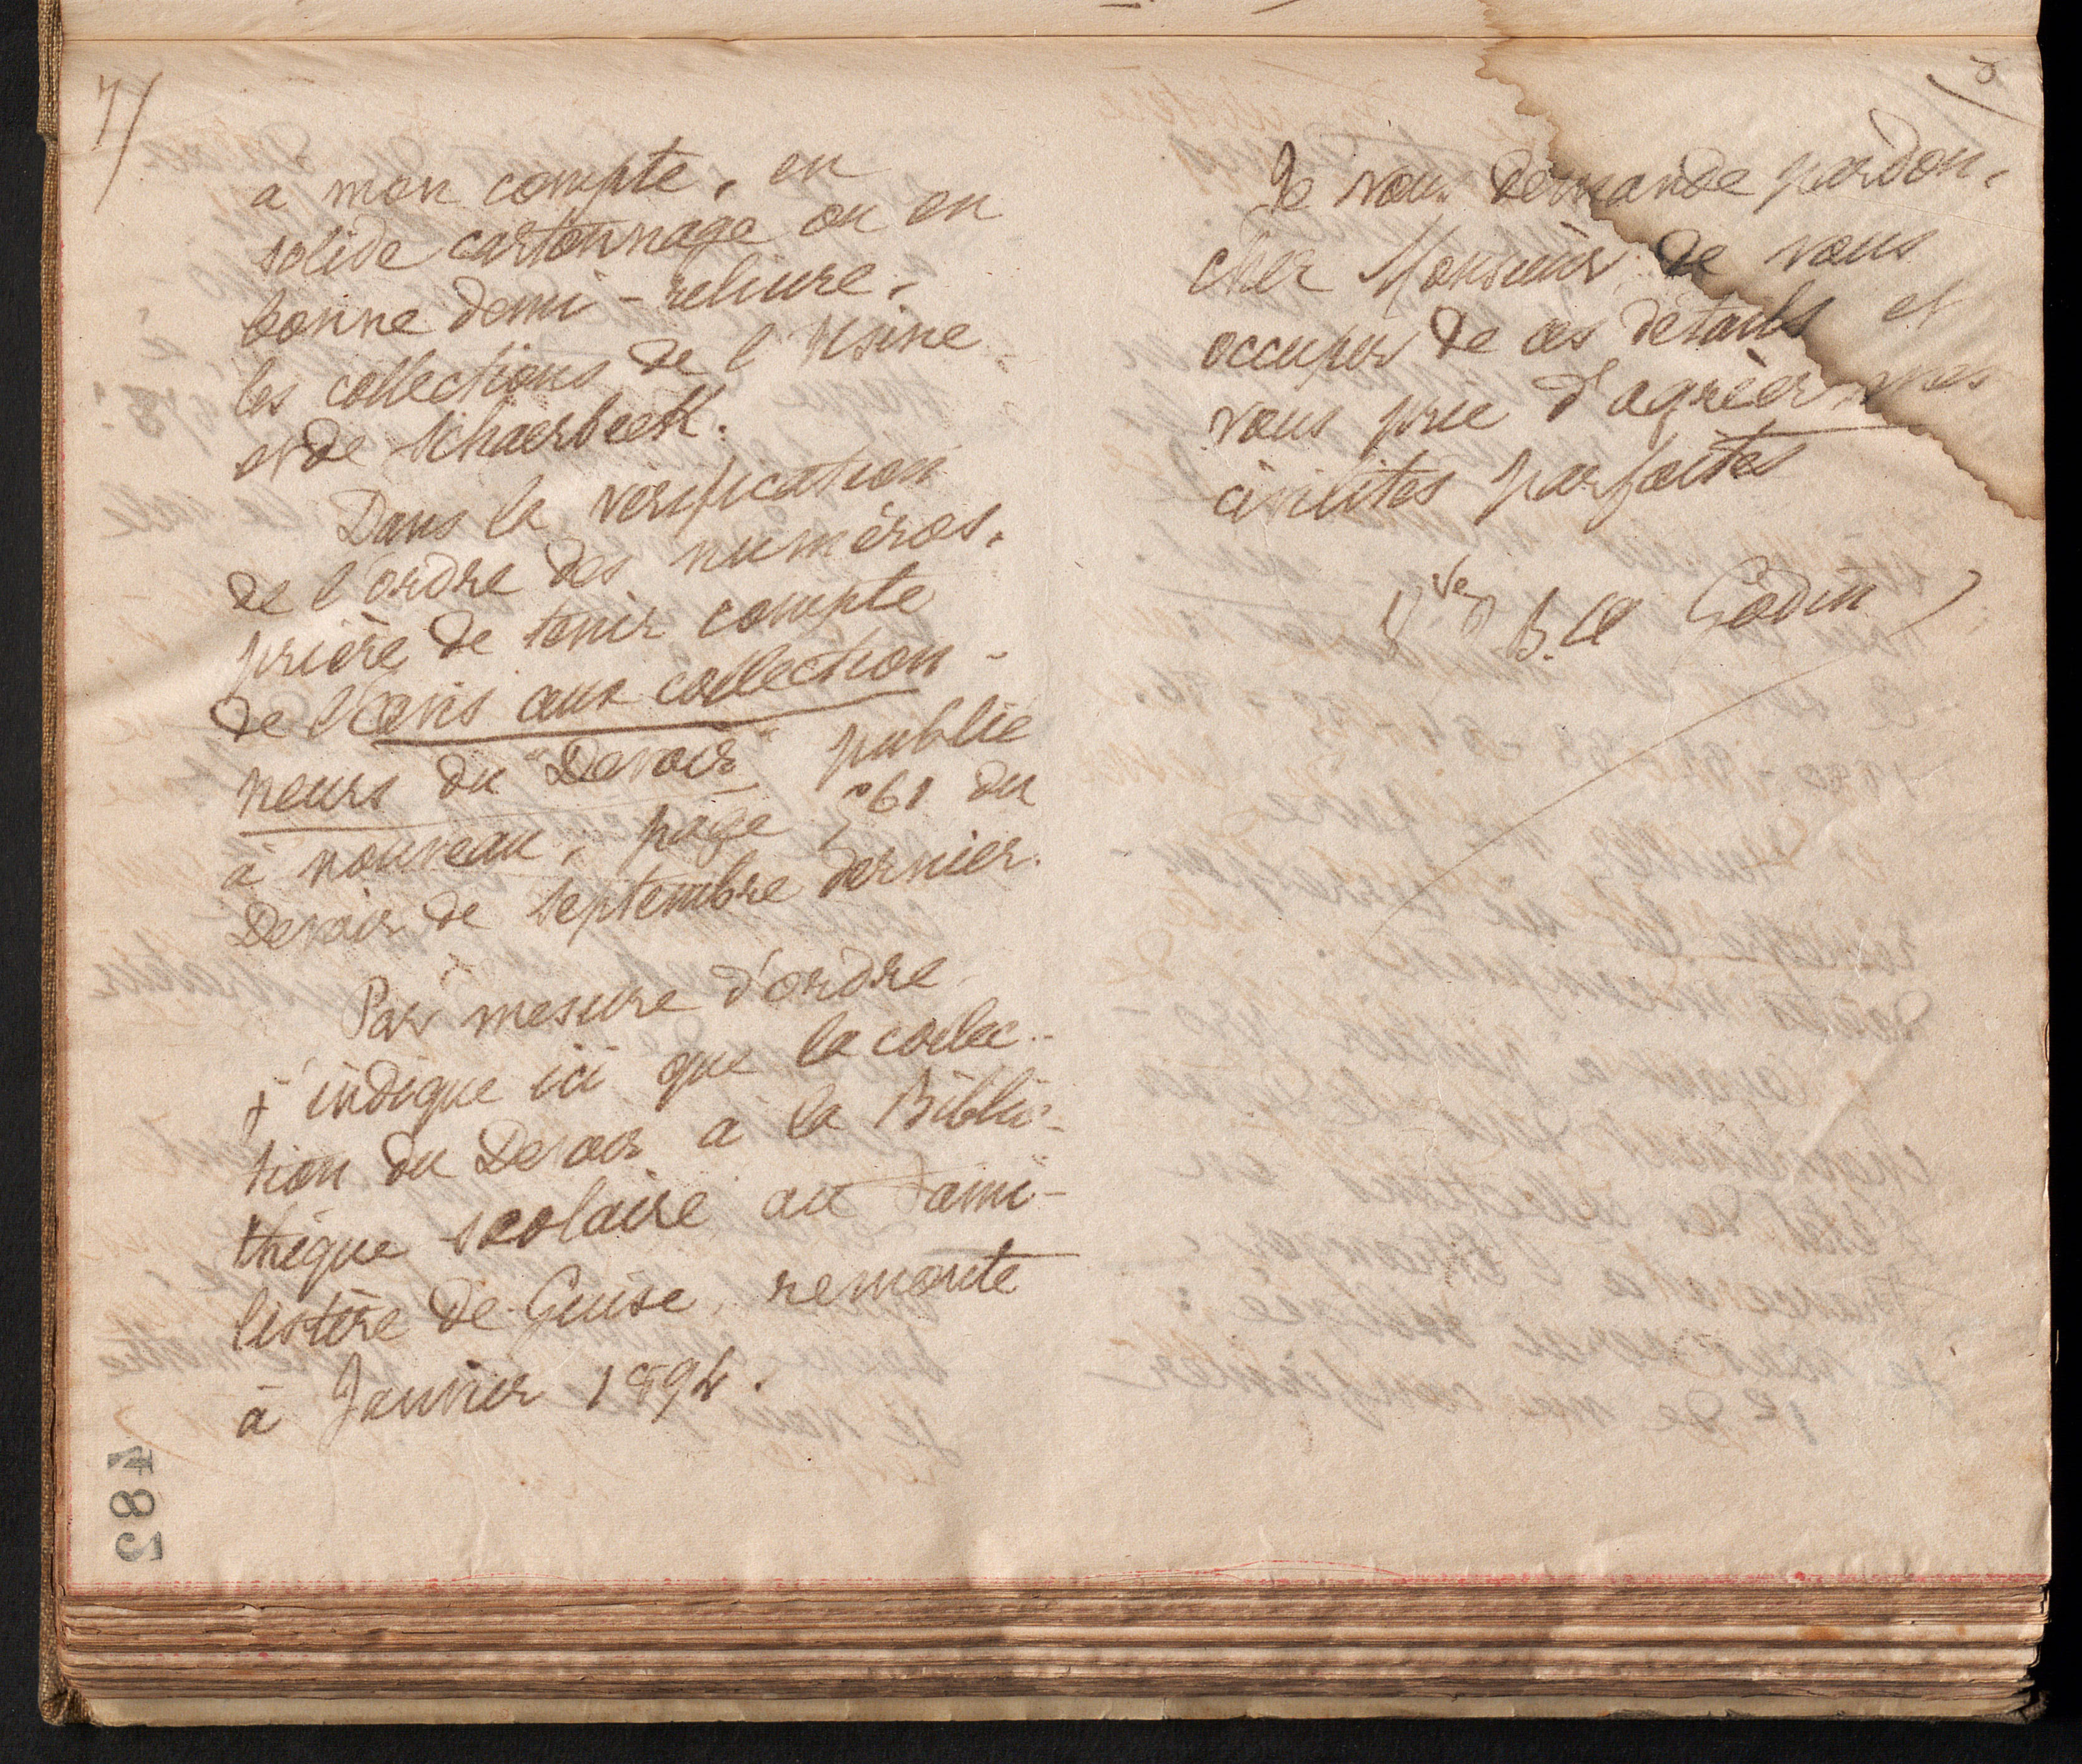 7/
a mon compte, en
solide cartonnage ou en
bonne demi-reliure,
les collections de l'Usine
et de Schaerbeek.
Dans la vérification
de l'ordre des numéros,
prière de tenir compte
de l'avis aux collection-
neurs du "Devoir" publié
à nouveau, page 561 du
Devoir de septembre dernier.
Par mesure d'ordre
j'indique ici que la collec-
tion du Devoir à la Biblio-
thèque scolaire au Fami-
listère de Guise, remonte
à Janvier 1894.
482
Je vous demande pardon,
cher Monsieur, de vous
occuper de ces détails et
vous prie d'agréer mes
civilités parfaites
Vve Godin